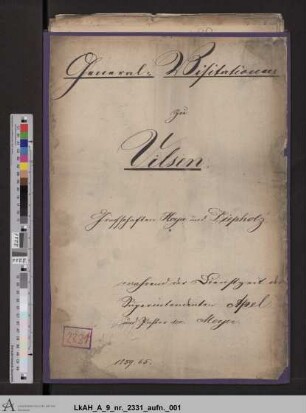 General-Visitationen
zu
Vilsen
Grafschaften Hoya und Diepholz
während der Dienstzeit des
Superintendenten Apel
und Pastor
2331
LkAH_A_9_nr._2331_aufn._001